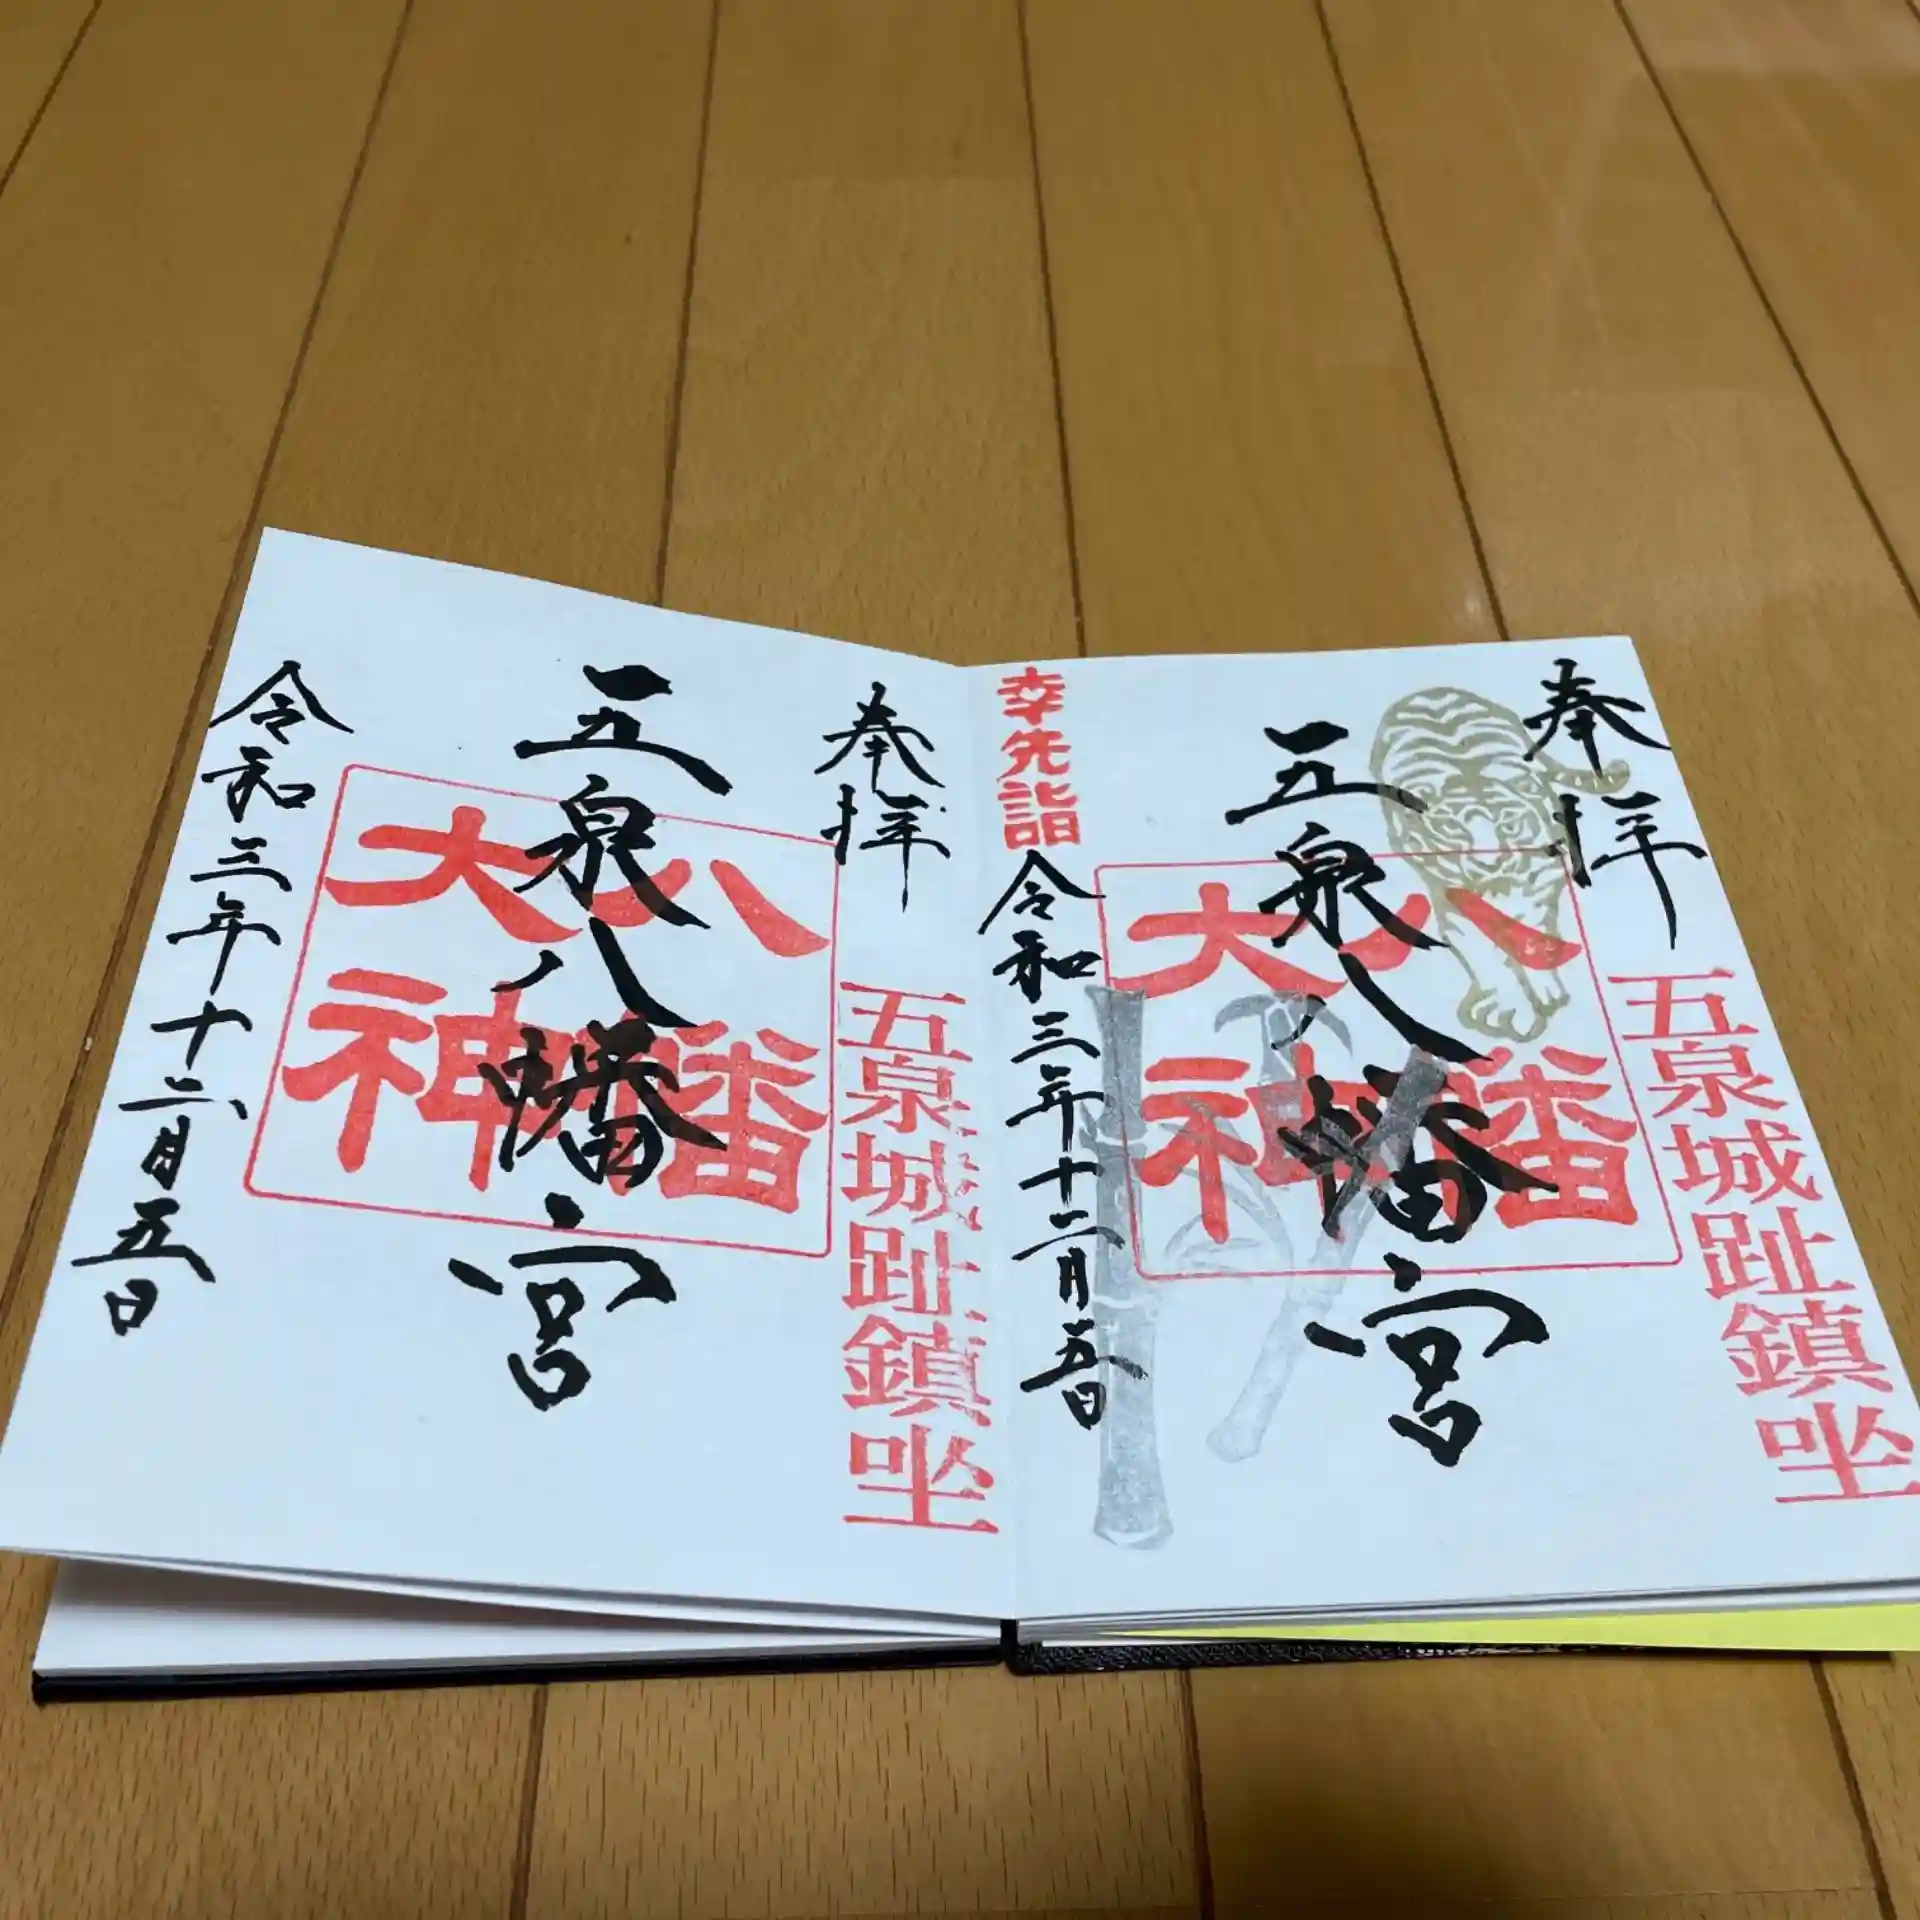 奉拝
五泉城趾鎮坐
五泉八幡宮
八幡
大神
令和三年十二月五日
幸先詣
奉拝
五泉城趾鎮坐
五泉八幡宮
八幡
大神
令和三年十二月五日